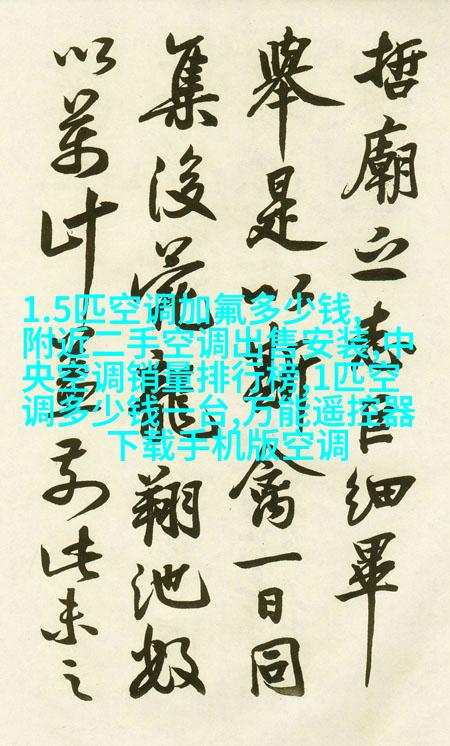 哲廟之志臣細畢
舉是以斯禽一日同
集後苑龍翔池
以萬計前此未之
1.5匹空调加氟多少钱,
附近二手空调出售安装,中
央空调销量排行榜,1匹空
调多少钱一台,万能遥控器
下载手机版空调